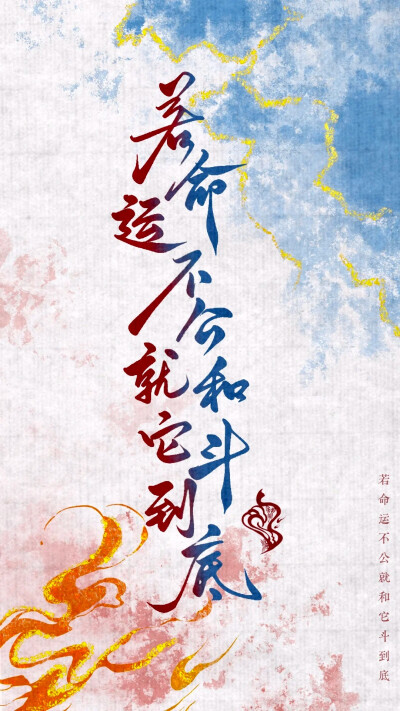 若命运不公就和它斗到底
若命运不公就和它斗到底